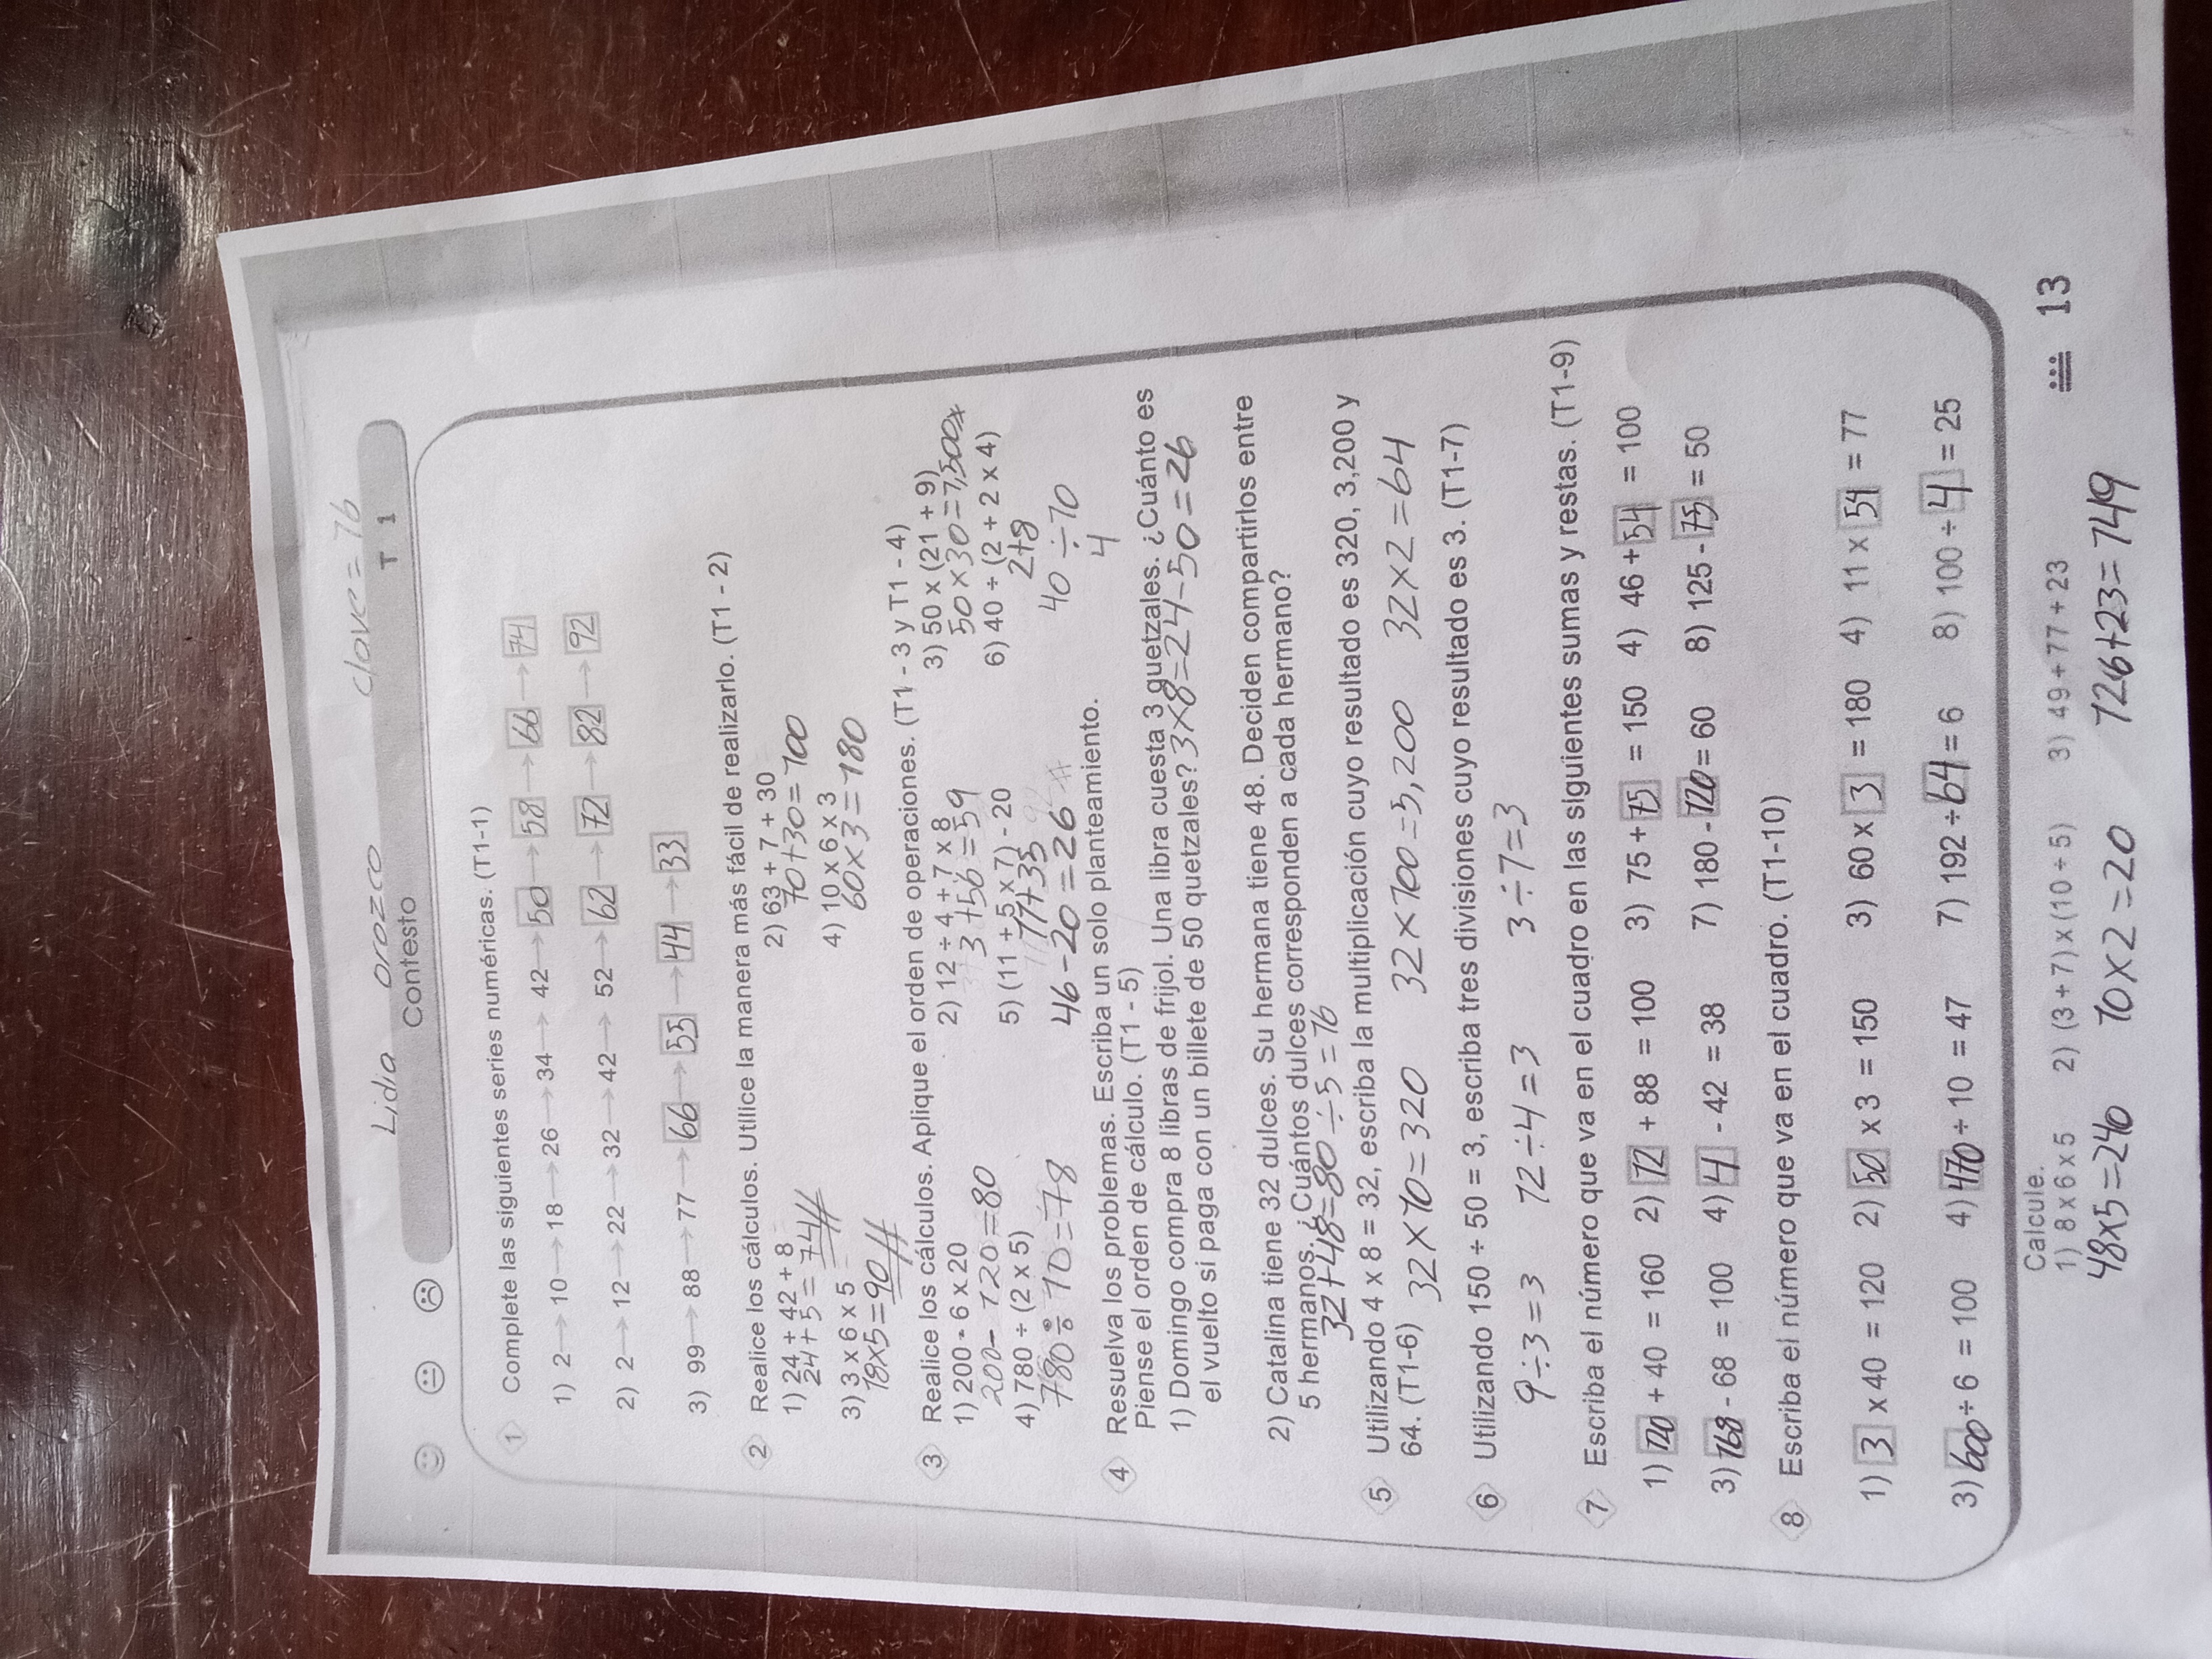 Lidia orozco clave = 76
Contesto T 1
1 Complete las siguientes series numéricas. (T1-1)
1) 2 → 10 → 18 → 26 → 34 → 42 → 50 → 58 → 66 → 74
2) 2 → 12 → 22 → 32 → 42 → 52 → 62 → 72 → 82 → 92
3) 99 → 88 → 77 → 66 → 55 → 44 → 33
2 Realice los cálculos. Utilice la manera más fácil de realizarlo. (T1 - 2)
1) 24 + 42 + 8 2) 63 + 7 + 30
24 + 5 = 74 70+30=100
3) 3 x 6 x 5 4) 10 x 6 x 3
18x5=90 60x3=180
3 Realice los cálculos. Aplique el orden de operaciones. (T1 - 3 y T1 - 4)
1) 200 - 6 x 20 2) 12 ÷ 4 + 7 x 8 3) 50 x (21 + 9)
200-120=80 3+56=59 50x30=1,500
4) 780 ÷ (2 x 5) 5) (11 + 5 x 7) - 20 6) 40 ÷ (2 + 2 x 4)
780÷10=78 11+35 2+8
46-20=26 40÷10
4
4 Resuelva los problemas. Escriba un solo planteamiento.
Piense el orden de cálculo. (T1 - 5)
1) Domingo compra 8 libras de frijol. Una libra cuesta 3 quetzales. ¿Cuánto es
el vuelto si paga con un billete de 50 quetzales? 3x8=24-50=26
2) Catalina tiene 32 dulces. Su hermana tiene 48. Deciden compartirlos entre
5 hermanos. ¿Cuántos dulces corresponden a cada hermano?
32+48=80÷5=16
5 Utilizando 4 x 8 = 32, escriba la multiplicación cuyo resultado es 320, 3,200 y
64. (T1-6) 32x10=320 32x100=3,200 32x2=64
6 Utilizando 150 ÷ 50 = 3, escriba tres divisiones cuyo resultado es 3. (T1-7)
9÷3=3 12÷4=3 3÷1=3
7 Escriba el número que va en el cuadro en las siguientes sumas y restas. (T1-9)
1) 120 + 40 = 160 2) 12 + 88 = 100 3) 75 + 75 = 150 4) 46 + 54 = 100
3) 168 - 68 = 100 4) 4 - 42 = 38 7) 180 - 120 = 60 8) 125 - 75 = 50
8 Escriba el número que va en el cuadro. (T1-10)
1) 3 x 40 = 120 2) 50 x 3 = 150 3) 60 x 3 = 180 4) 11 x 54 = 77
3) 600 ÷ 6 = 100 4) 470 ÷ 10 = 47 7) 192 ÷ 64 = 6 8) 100 ÷ 4 = 25
Calcule.
1) 8 x 6 x 5 2) (3 + 7) x (10 ÷ 5) 3) 49 + 77 + 23
48x5=240 10x2=20 726+23=749
13